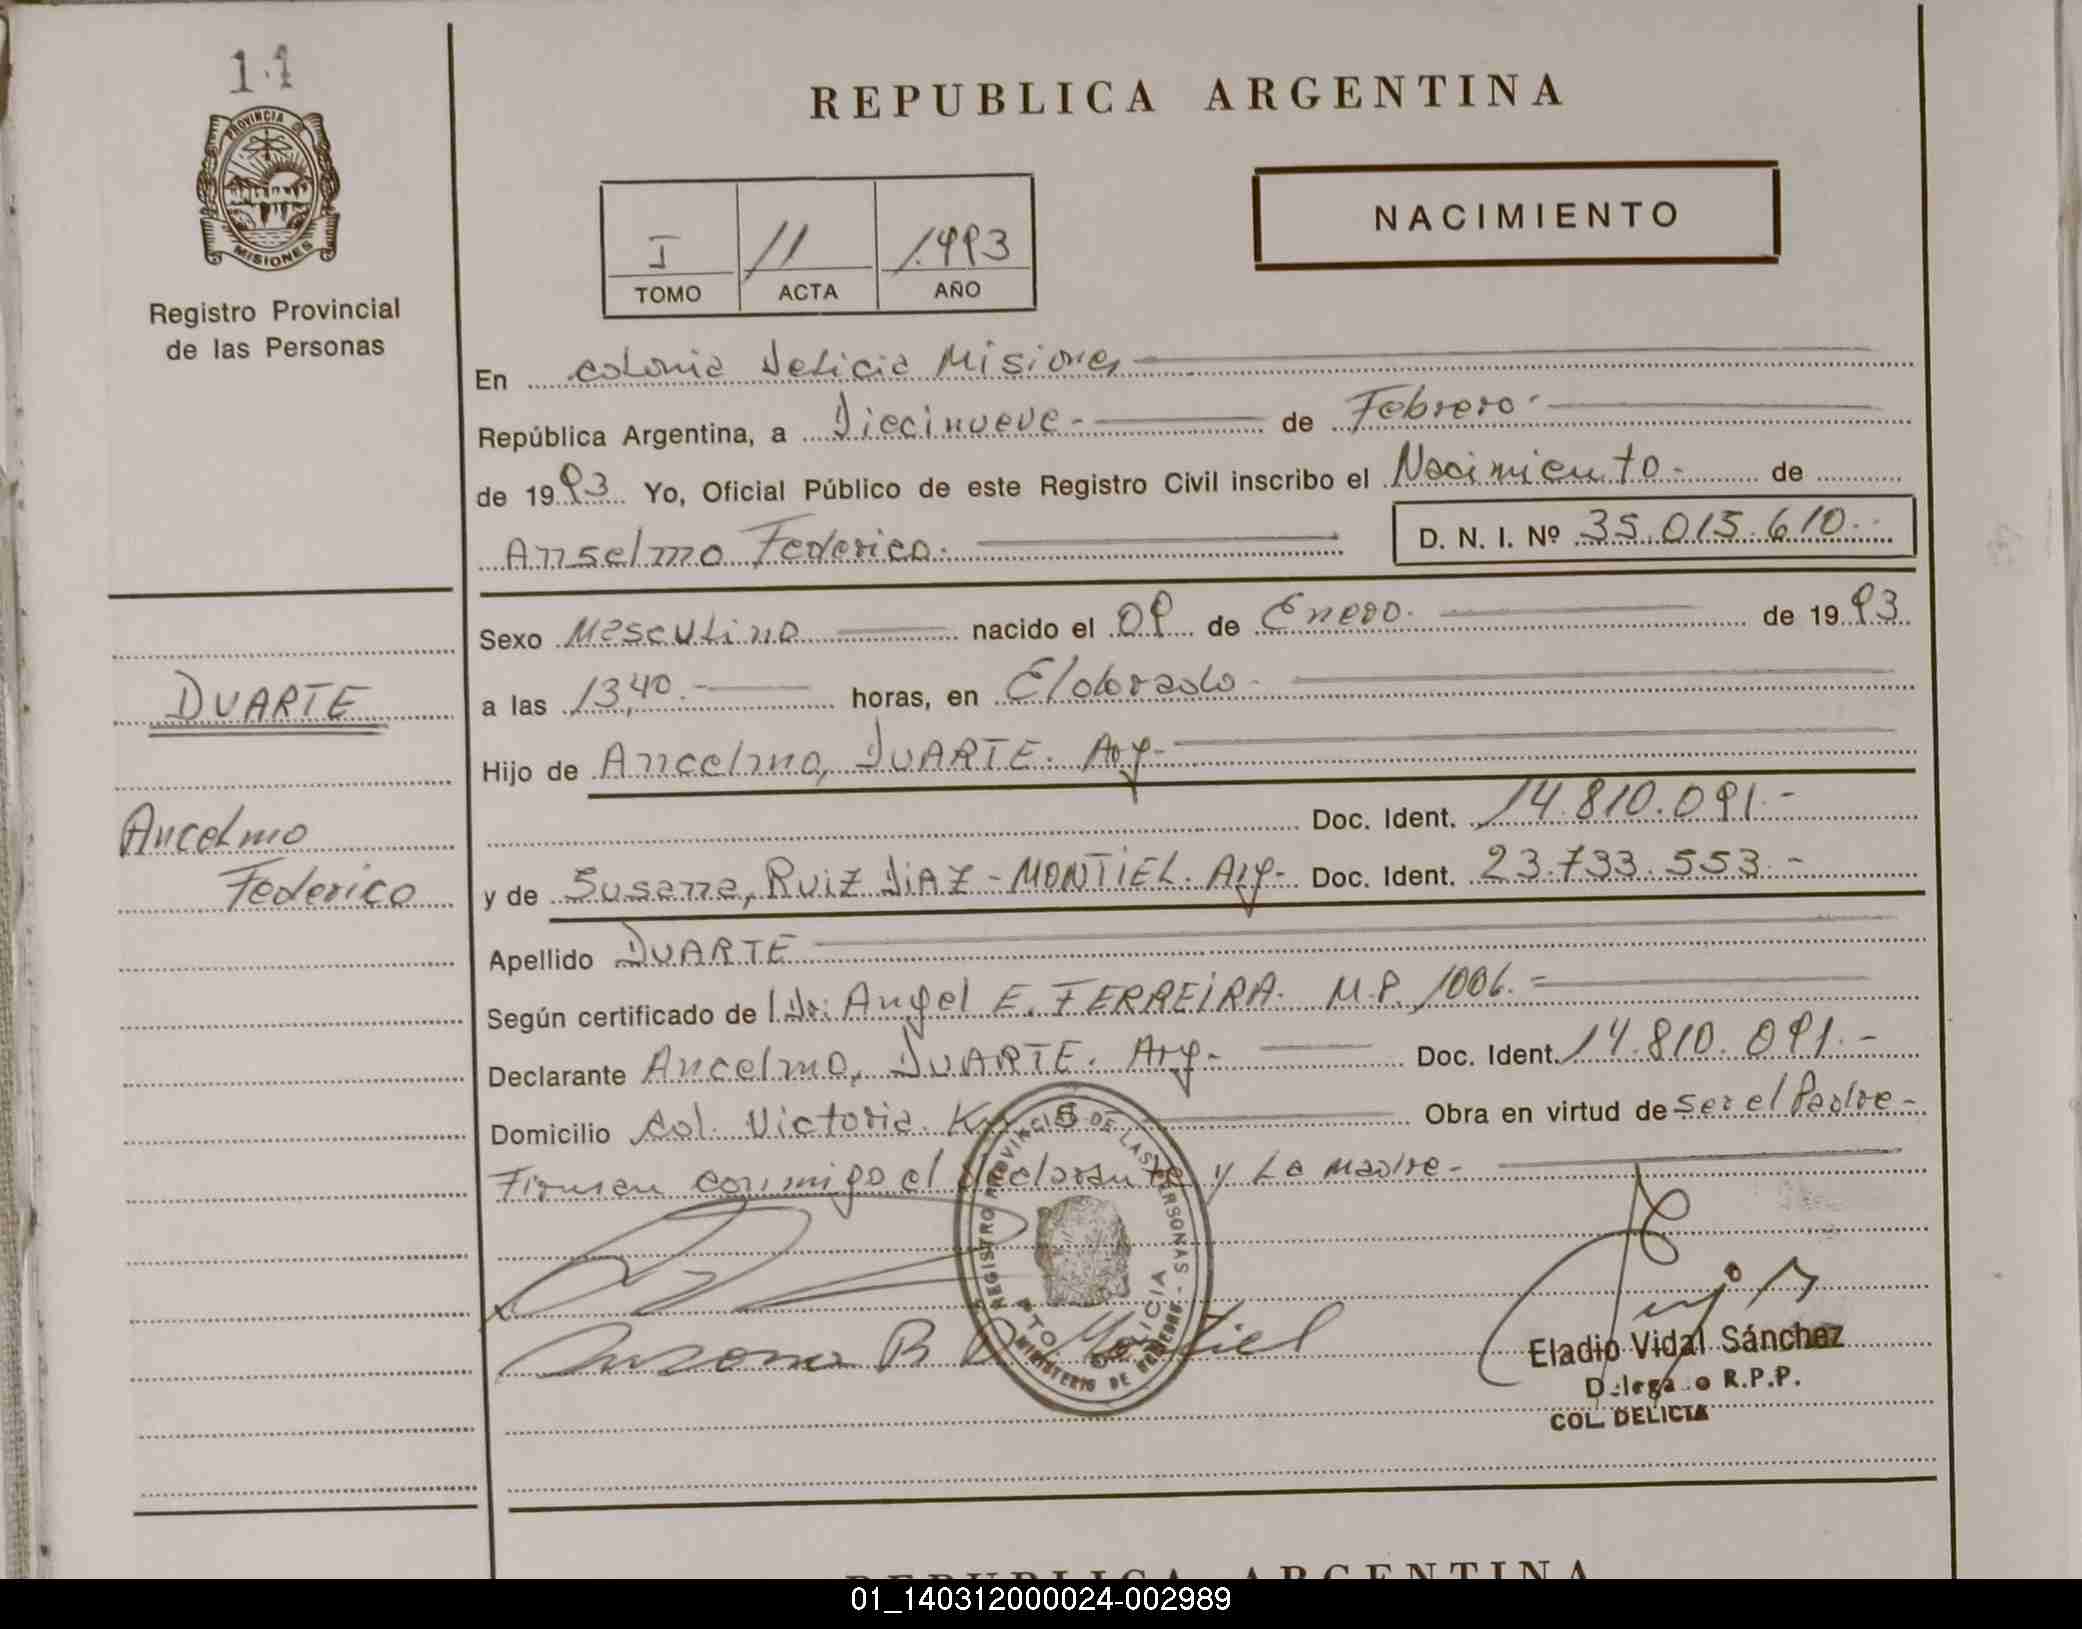 14
REPUBLICA ARGENTINA
PROVINCIA DE
MISIONES
Registro Provincial
de las Personas
I 11 1.993
TOMO ACTA AÑO
NACIMIENTO
En Colonia Delicia Misiones
República Argentina, a Diecinueve.- de Febrero.-
de 1993 Yo, Oficial Público de este Registro Civil inscribo el Nacimiento.- de
Anselmo Federico.- D. N. I. Nº 35.015.610.-
Sexo Masculino nacido el 09 de Enero.- de 1993.
a las 13,40.- horas, en Eldorado.-
Hijo de Ancelmo, DUARTE. Arg-
Doc. Ident. 14.810.091.-
y de Susana, RUIZ DIAZ - MONTIEL. Arg- Doc. Ident. 23.733.553.-
Apellido DUARTE
Según certificado de Dr: Angel E. FERREIRA. M.P. 1006.=
Declarante Ancelmo, DUARTE. Arg- Doc. Ident. 14.810.091.-
Domicilio Col. Victoria. Km 5 Obra en virtud de ser el Padre-
Firman conmigo el declarante y La madre-
DUARTE
Ancelmo
Federico
REGISTRO PROVINCIAL DE LAS PERSONAS
DELICIA
MINISTERIO DE
Susana R D Montiel
Eladio Vidal Sánchez
Delegado R.P.P.
COL. DELICIA
REPUBLICA ARGENTINA
01_140312000024-002989